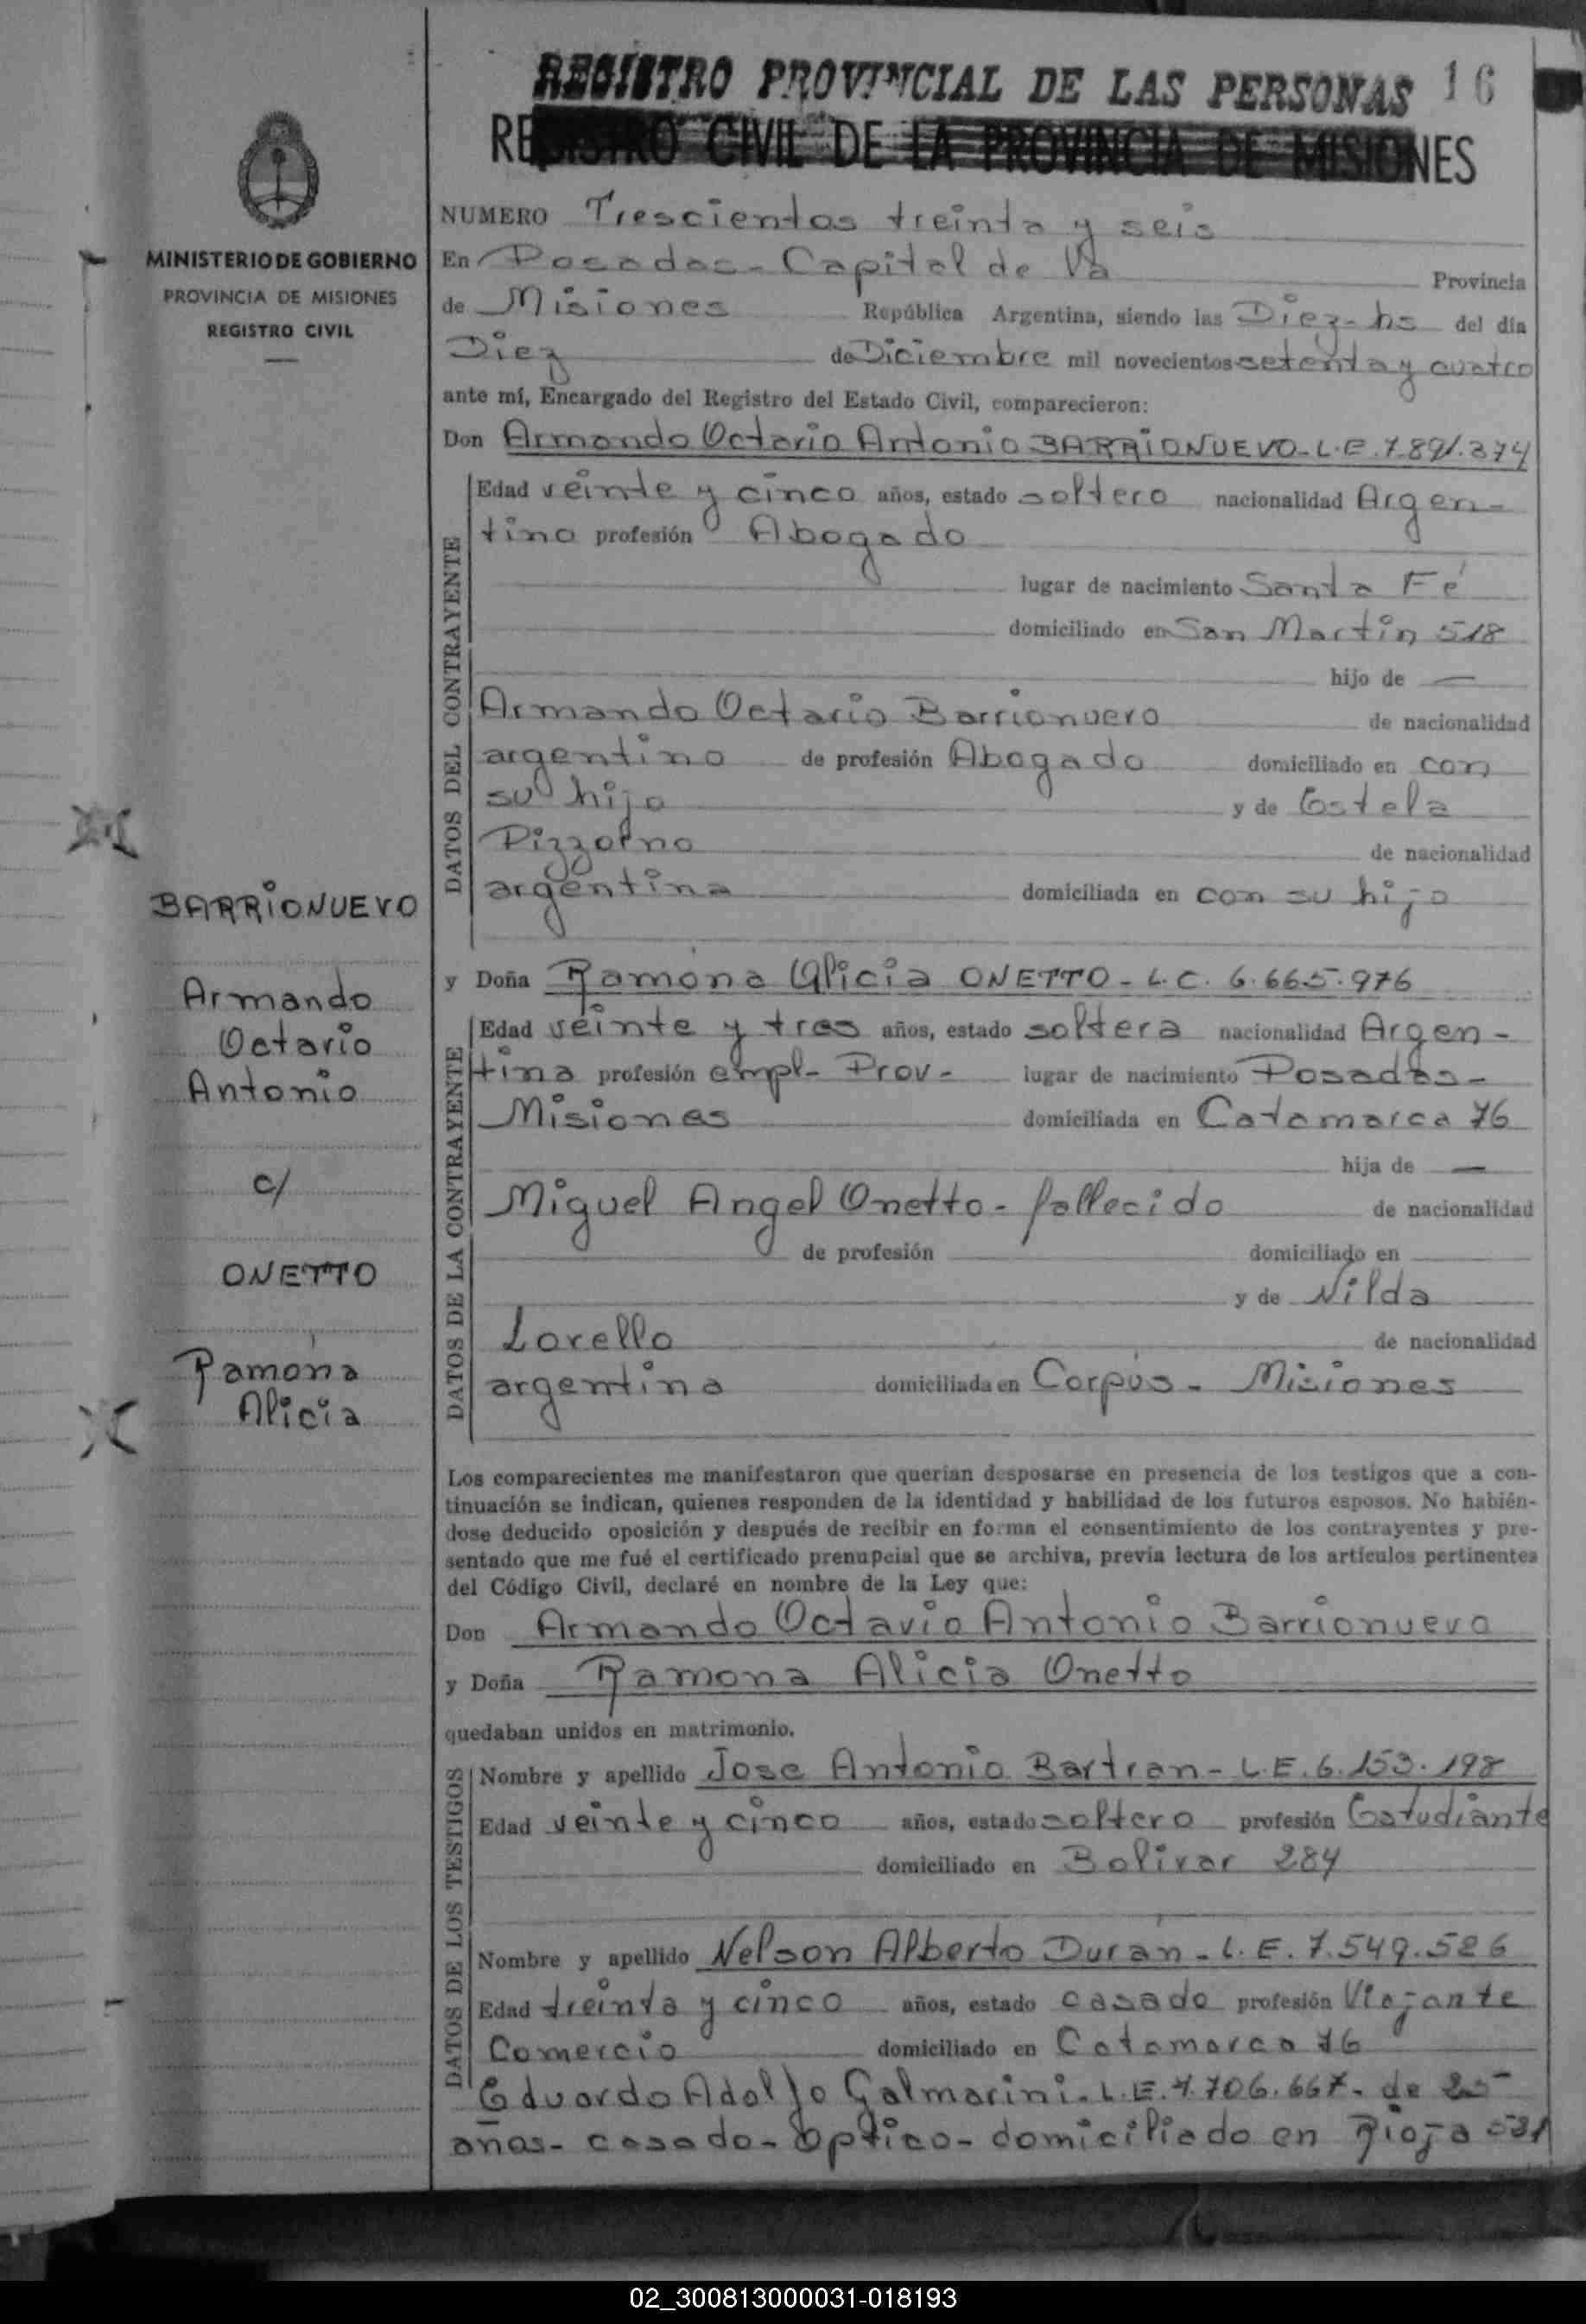 REGISTRO PROVINCIAL DE LAS PERSONAS 16
REGISTRO CIVIL DE LA PROVINCIA DE MISIONES
MINISTERIO DE GOBIERNO
PROVINCIA DE MISIONES
REGISTRO CIVIL
NUMERO Trescientos treinta y seis
En Posadas - Capital de la Provincia
de Misiones República Argentina, siendo las Diez - hs del día
Diez de Diciembre mil novecientos setenta y cuatro
ante mí, Encargado del Registro del Estado Civil, comparecieron:
Don Armando Octavio Antonio BARRIONUEVO - L.E. 7.891.374
DATOS DEL CONTRAYENTE
Edad veinte y cinco años, estado soltero nacionalidad Argen-
tino profesión Abogado
lugar de nacimiento Santa Fé
domiciliado en San Martín 518
hijo de —
Armando Octavio Barrionuevo de nacionalidad
argentino de profesión Abogado domiciliado en con
su hijo y de Estela
Pizzorno de nacionalidad
argentina domiciliada en con su hijo
BARRIONUEVO
Armando
Octavio
Antonio
c/
ONETTO
Ramona
Alicia
y Doña Ramona Alicia ONETTO - L.C. 6.665.976
DATOS DE LA CONTRAYENTE
Edad veinte y tres años, estado soltera nacionalidad Argen-
tina profesión empl- Prov- lugar de nacimiento Posadas-
Misiones domiciliada en Catamarca 76
hija de —
Miguel Angel Onetto - fallecido de nacionalidad
de profesión domiciliado en
y de Nilda
Lorello de nacionalidad
argentina domiciliada en Corpus - Misiones
Los comparecientes me manifestaron que querían desposarse en presencia de los testigos que a con-
tinuación se indican, quienes responden de la identidad y habilidad de los futuros esposos. No habién-
dose deducido oposición y después de recibir en forma el consentimiento de los contrayentes y pre-
sentado que me fué el certificado prenupcial que se archiva, previa lectura de los artículos pertinentes
del Código Civil, declaré en nombre de la Ley que:
Don Armando Octavio Antonio Barrionuevo
y Doña Ramona Alicia Onetto
quedaban unidos en matrimonio.
DATOS DE LOS TESTIGOS
Nombre y apellido Jose Antonio Bartran - L.E. 6.153.198
Edad veinte y cinco años, estado soltero profesión Estudiante
domiciliado en Bolivar 284
Nombre y apellido Nelson Alberto Durán - L.E. 7.549.526
Edad treinta y cinco años, estado casado profesión Viajante
Comercio domiciliado en Catamarca 76
Eduardo Adolfo Galmarini - L.E. 7.706.667 - de 25
años - casado - Optico - domiciliado en Rioja 531
02_300813000031-018193